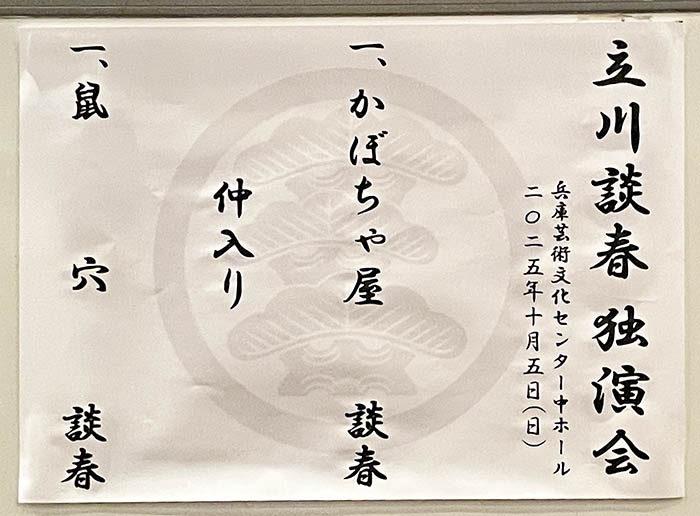 立川談春 独演会
兵庫芸術文化センター中ホール
二〇二五年十月五日(日)
一、かぼちゃ屋 談春
仲入り
一、鼠穴 談春